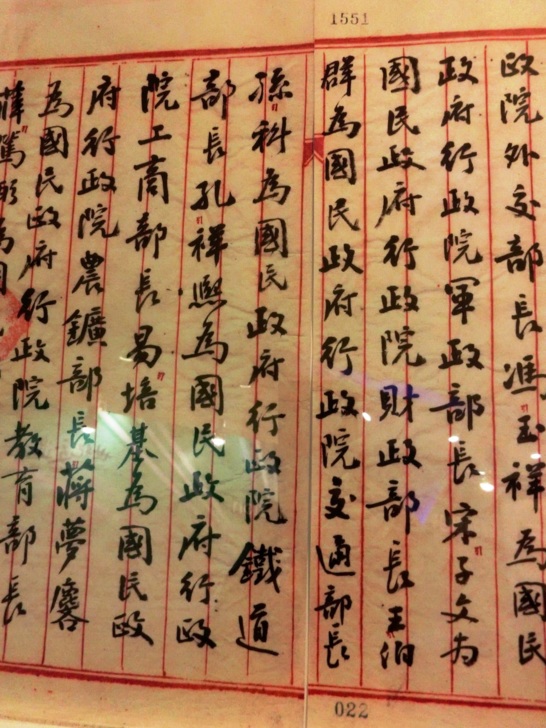 1551
政院外交部長馮玉祥為國民
政府行政院軍政部長宋子文为
國民政府行政院財政部長王伯
群為國民政府行政院交通部長
孫科為國民政府行政院鐵道
部長孔祥熙為國民政府行政
院工商部長易培基為國民政
府行政院農鑛部長蔣夢麐
為國民政府行政院教育部長
薛篤弼為國民
022